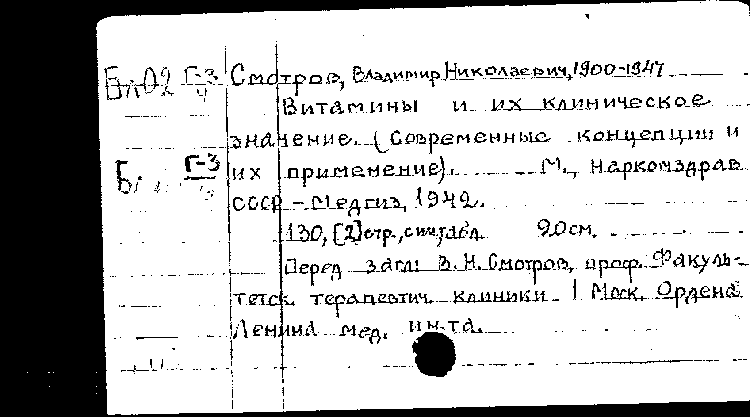 Бл02 Г-3/4 Смотров, Владимир Николаевич, 1900-1947
Витамины и их клиническое
значение. (Современные концепции и
Б. Г-3 их применение). М., Наркомздрав
СССР - Медгиз, 1942.
130, [2] стр., с илл., табл. 20 см.
Перед загл: В. Н. Смотров, проф. Факуль-
тетск. терапевтич. клиники I Моск. Ордена
Ленина мед. ин-та.